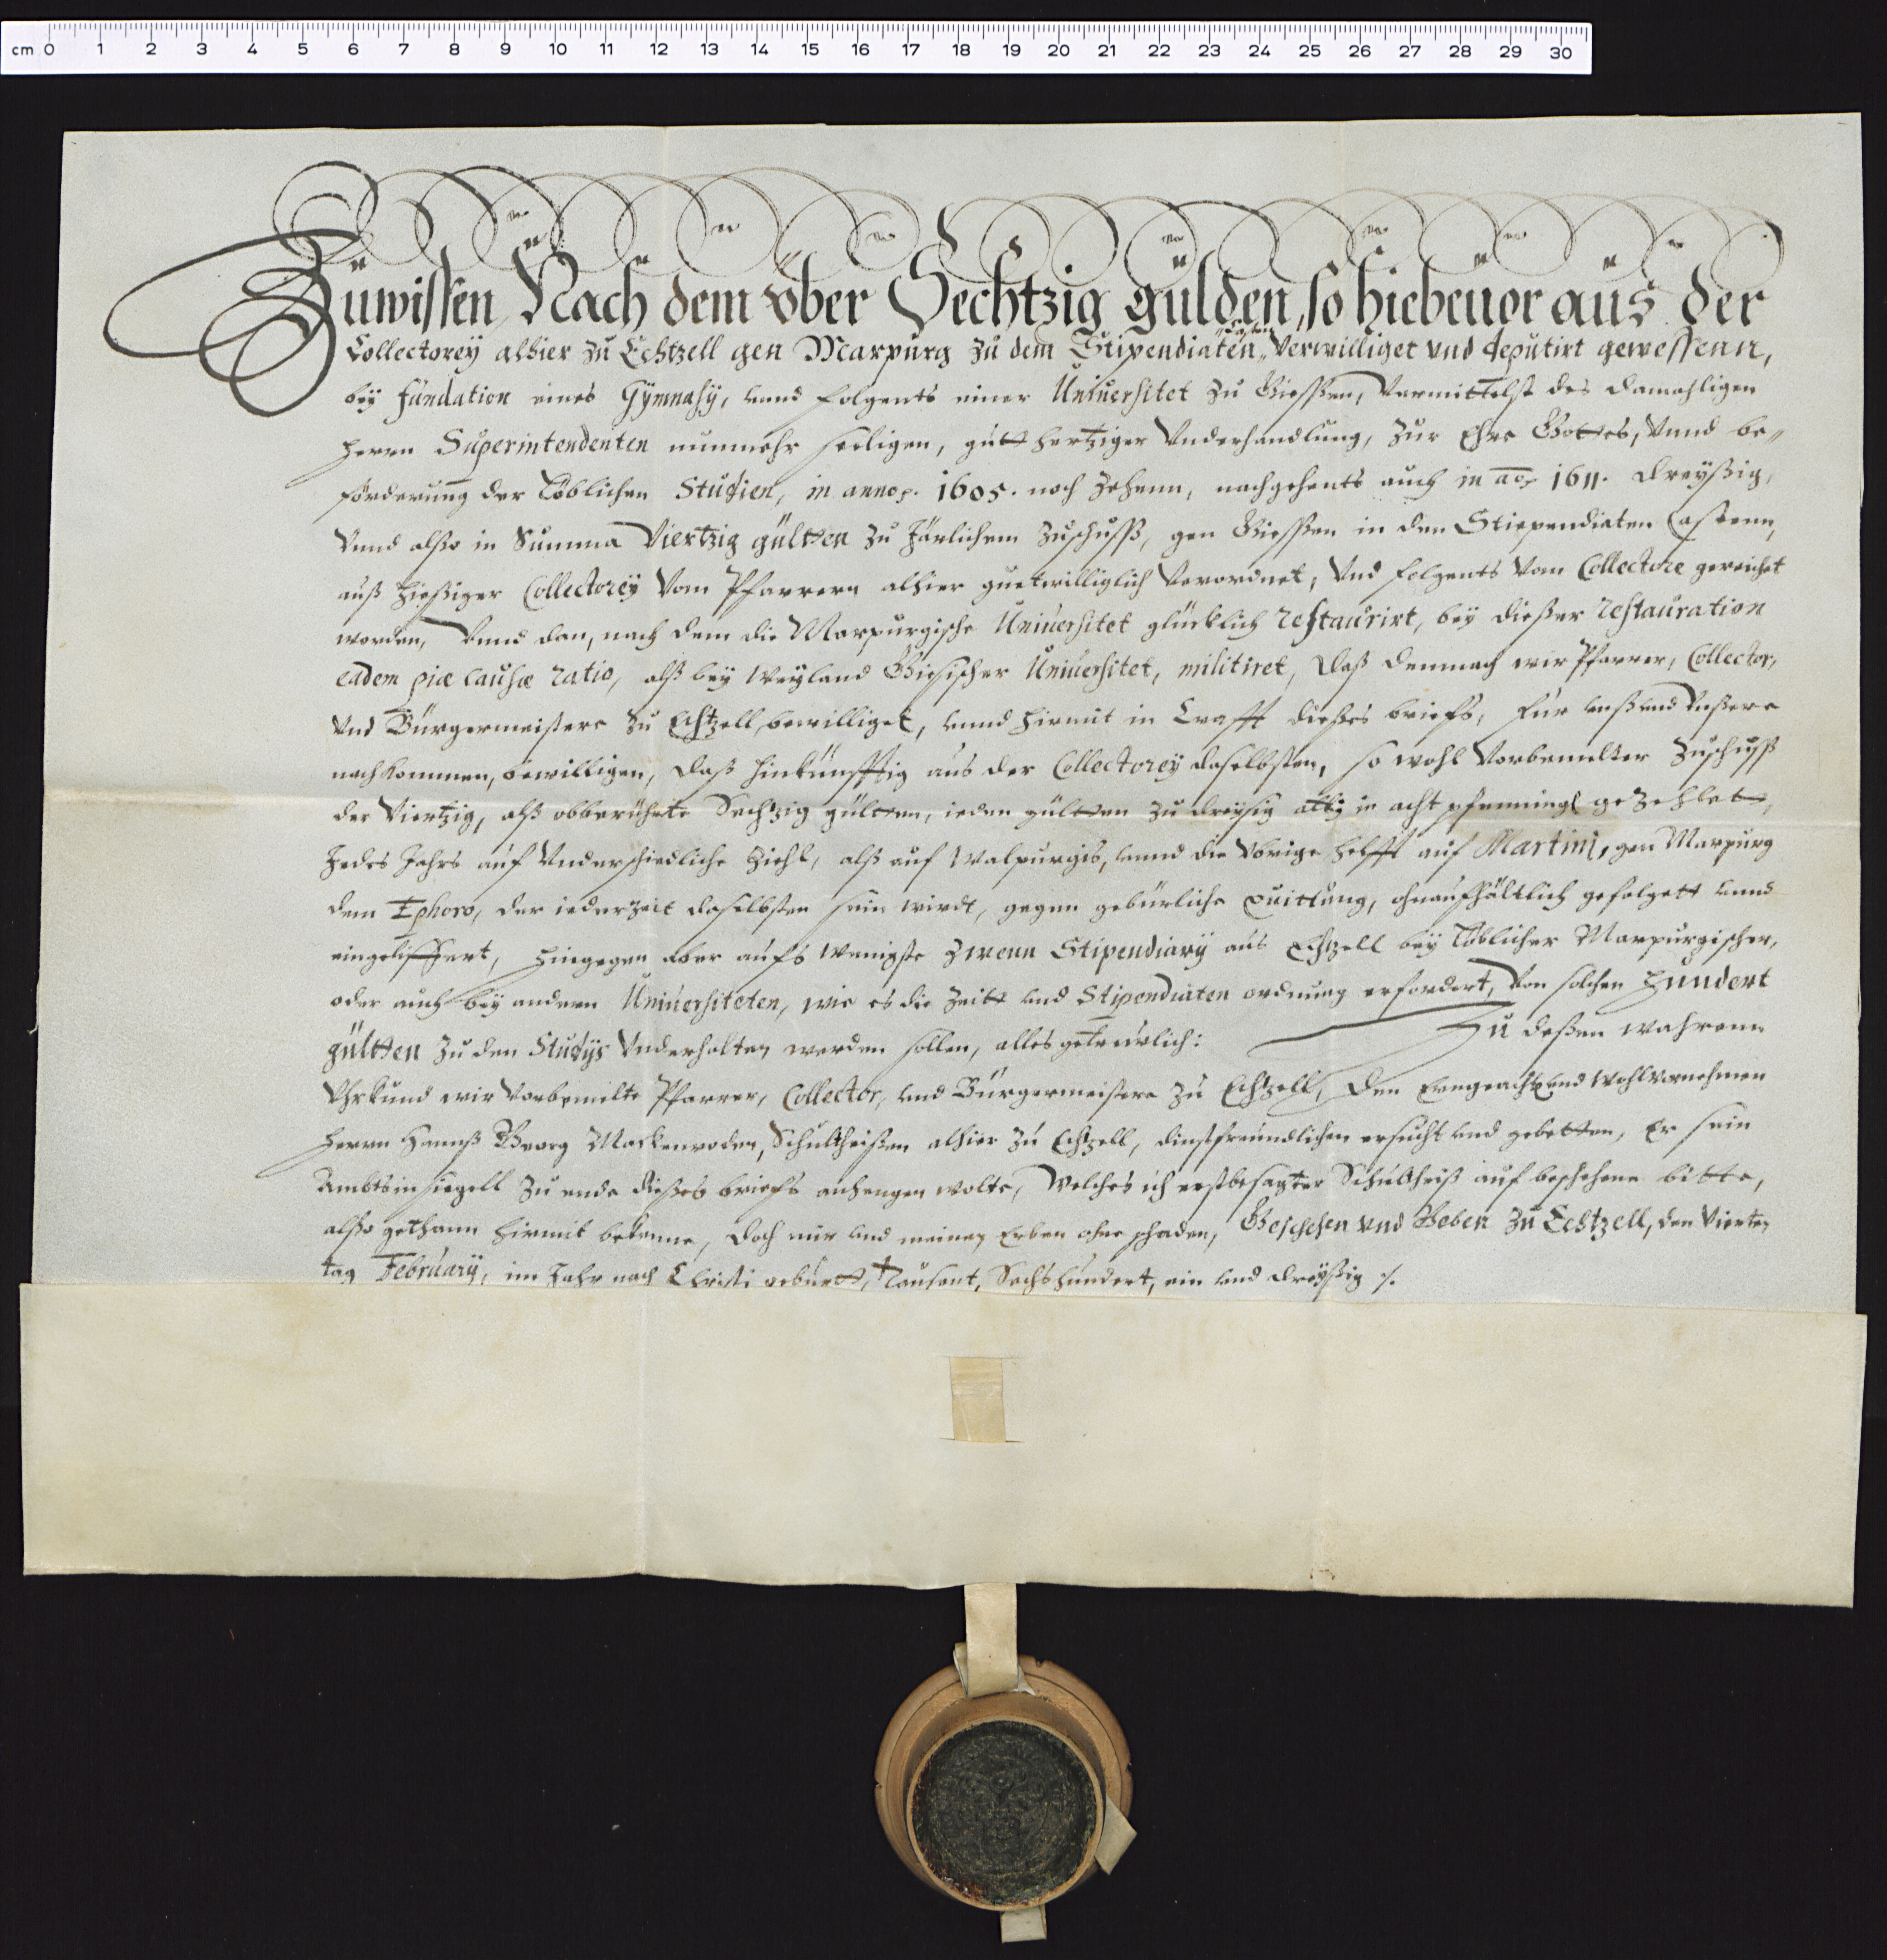 cm 0 1 2 3 4 5 6 7 8 9 10 11 12 13 14 15 16 17 18 19 20 21 22 23 24 25 26 27 28 29 30
Zuwissen, Nach dem vber Sechtzig gulden, so hiebeuor aus der
Collectorey alhier zu Echtzell gen Marpurg zu dem Stipendiaten Casten verwilliget vnd deputirt gewessenn,
bey fundation eines Gymnasij, vnnd folgents einer Vniuersitet zu Giessen, Vermittelst des damahligen
Herrn Superintendenten nunmehr seeligen, gutt hertziger Vnderhandlung, zur Ehre Gottes, Vnnd be„
förderung der Löblichen Studien, in anno. 1605. noch Zehenn, nachgehents auch in ao. 1611. dreyßig,
Vnnd alßo in Summa Viertzig gültten zu Järlichem Zuschusß, gen Giessen in den Stiependiaten Castenn,
auß hießiger Collectorey Vom Pfarrern alhier guetwilliglich Verordnet, Vnd folgents Vom Collectore gereichet
worden, Vnnd dan, nach dem die Marpurgische Vniuersitet glücklich restaurirt, bey dießer restauration
eadem piæ causæ ratio, alß bey weyland Giesischer Vniuersitet, militiret, Daß demnach wir Pfarrer, Collector,
Vnd Bürgermeistere zu Echtzell, bewilliget, vnnd hirmit in Crafft dießes briefs, für vnß vnd Vnßere
nachkommen, bewilligen, Daß hinkünfftig aus der Collectorey daselbsten, so wohl Vorbemelter Zuschuss
der Viertzig, alß obberührte Sechtzig gültten, ieden gültten zu dreysig alb ie acht pfenning gezehlet,
Jedes Jahrs auf Vnderschiedliche Ziehl, alß auf Walpurgis, vnnd die Vbrige helfft auf Martinj, gen Marpurg
dem Ephoro, der iederzeit daselbsten sein wirdt, gegen gebürliche quittung, ohnaufhältlich gefolgett vnnd
eingeliffert, Hingegen aber aufs wenigste zwenn Stipendiarij aus Echtzell bey Löblicher Marpurgischer,
oder auch bey andern Vniuersiteten, wie es die Zeitt vnd Stipendiaten ordnung erfordert, Von solchen Hundert
gültten zu den Studijs Vnderhalten werden sollen, alles getreulich: Zu deßen wahrenn
Vhrkund wir Vorbemelte Pfarrer, Collector, vnd Bürgermeistere zu Echtzell, Den Ernveacht vnd Wohlvornehmen
Herrn Hannß Georg Mackenroden, Schultheißen alhier zu Echtzell, dinstfreundlichen ersucht vnd gebetten, Er sein
Ambtsinsiegell zu ende dießes briefs anhengen wolte, Welches ich erstbesagter Schultheiß auf beschehene bitte,
alßo gethann hirmit bekenne, Doch mir vnd meinen Erben ohne schaden, Geschehen vnd Geben zu Echtzell, den Vierten
tag February, im Jahr nach Christi geburtt, Tausent, Sechshundert, ein vnd dreyßig ./.